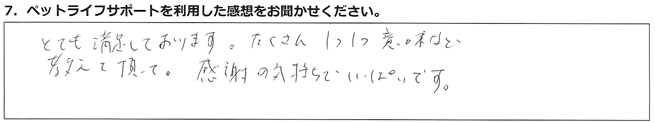 7. ペットライフサポートを利用した感想をお聞かせください。
とても満足しております。たくさん 1つ1つ 意味など
教えて頂いて。感謝の気持ちでいっぱいです。